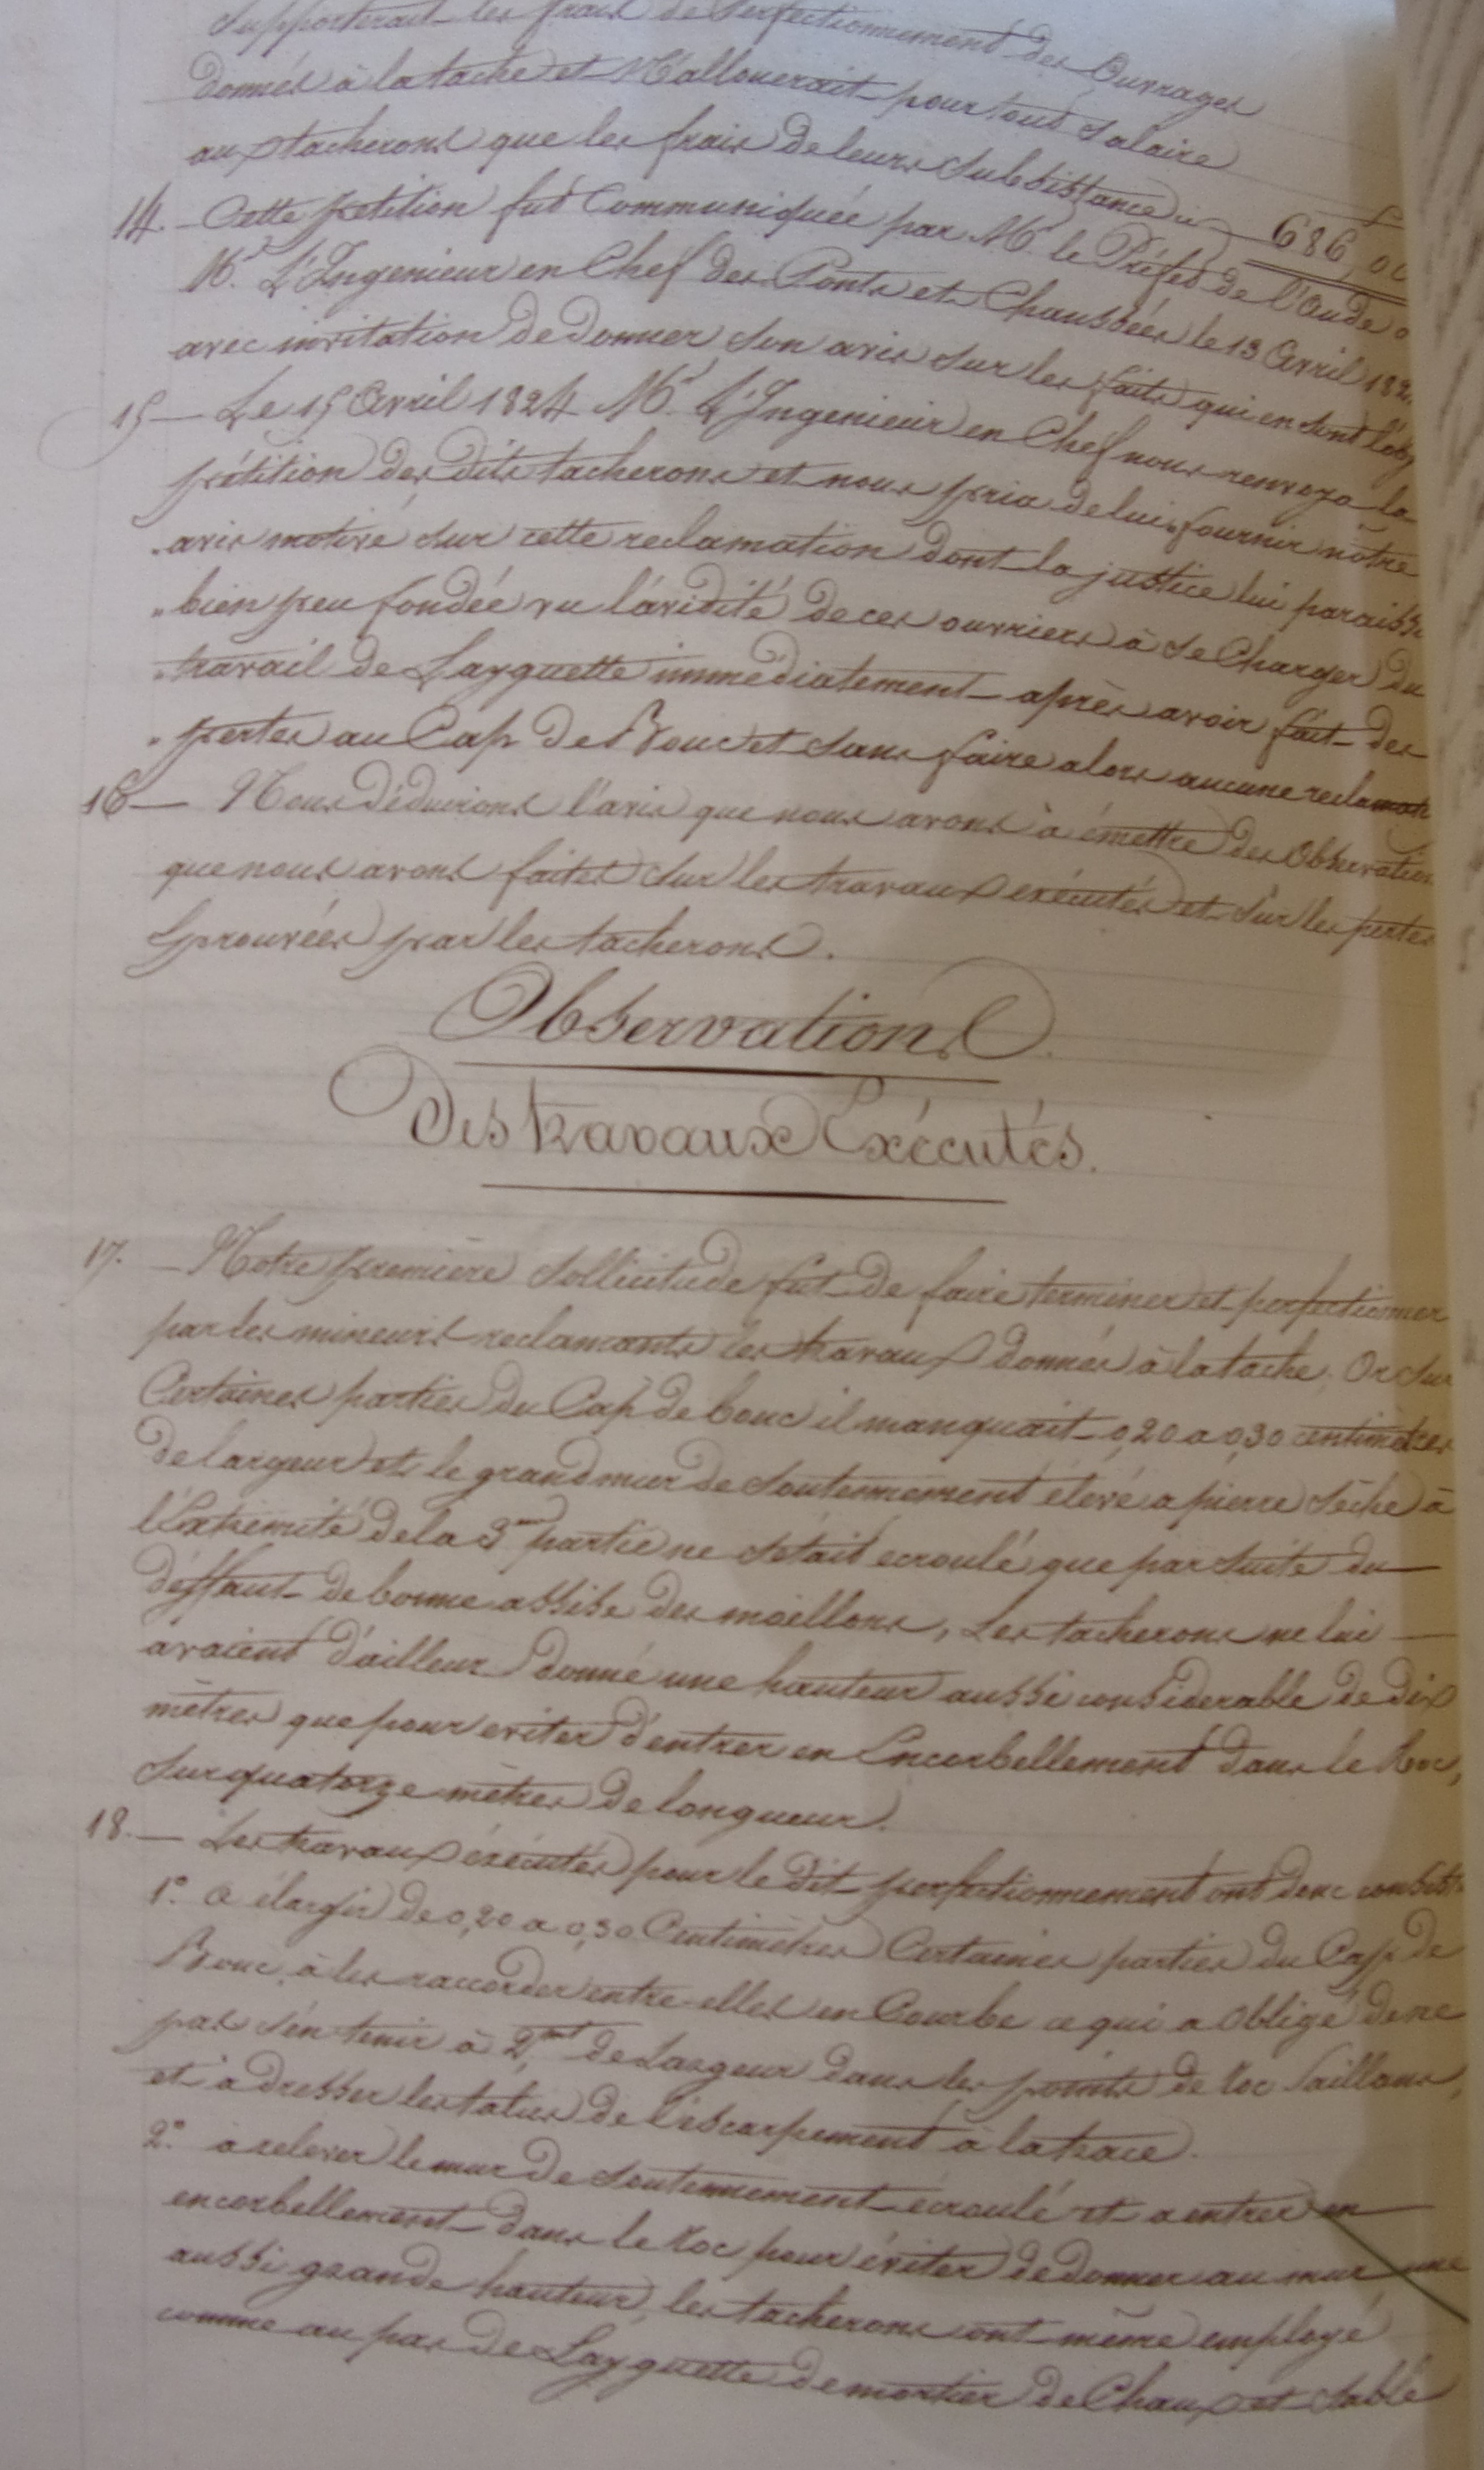 Supporterait les frais de Perfectionnement des Ouvrages
donnés à la tache et N'allouerait pour tout Salaire
aux tacherons que les frais de leurs Subsistances ci 686,00
14. — Cette petition fut Communiquée par Mr. le Préfet de l'Aude a
Mr. L'Ingenieur en Chef des Ponts et Chaussées le 13 Avril 182
avec invitation de donner son avis sur les faits qui en sont l'obj
15 — Le 15 Avril 1824 Mr. L'Ingenieur en Chef nous renvoya la
pétition des dits tacherons et nous pria de lui „fournir nôtre
„avis motivé sur cette reclamation dont la justice lui paraiss
„bien peu fondée vu l'avidité de ces ouvriers à se Charger du
„travail de Layguette immédiatement après avoir fait des
„pertes au Cap de Bouc et sans faire alors aucune reclamati
16 — Nous déduirons l'avis que nous avons à émettre des Observations
que nous avons faites sur les travaux exécutés et sur les pertes
Eprouvées par les tacherons.
Observations
Des travaux Exécutés.
17. — Notre première sollicitude fut de faire terminer et perfectionner
par les mineurs reclamants les travaux donnés à la tache. Or sur
Certaines parties du Cap de bouc il manquait 0,20 a 0,30 centimètres
de largeur et le grand mur de Soutennement élevé a pierre Sèche à
l'Extrémité de la 3me partie ne s'était ecroulé que par suite du
déffaut de bonne assise des moëllons, Les tacherons ne lui
avaient d'ailleurs donné une hauteur aussi considerable de dix
mètres que pour eviter d'entrer en Encorbellement dans le Roc,
sur quatorze mètres de longueur.
18. — Les travaux éxécutés pour le dit perfectionnement ont donc consist
1.° a élargir de 0,20 a 0,30 Centimètres Certaines parties du Cap de
Bouc, à les raccorder entre elles en Courbe ce qui a Obligé de ne
pas s'en tenir à 2,mt de Largeur dans les points de Roc Saillans,
et à dresser les talus de l'éscarpement à la trace.
2.° à relever le mur de soutennement écroulé et a entrer en
encorbellement dans le roc pour éviter de donner au mur une
aussi grande hauteur, les tacherons ont même employé
comme au pas de Layguette de mortier de Chaux et Sable